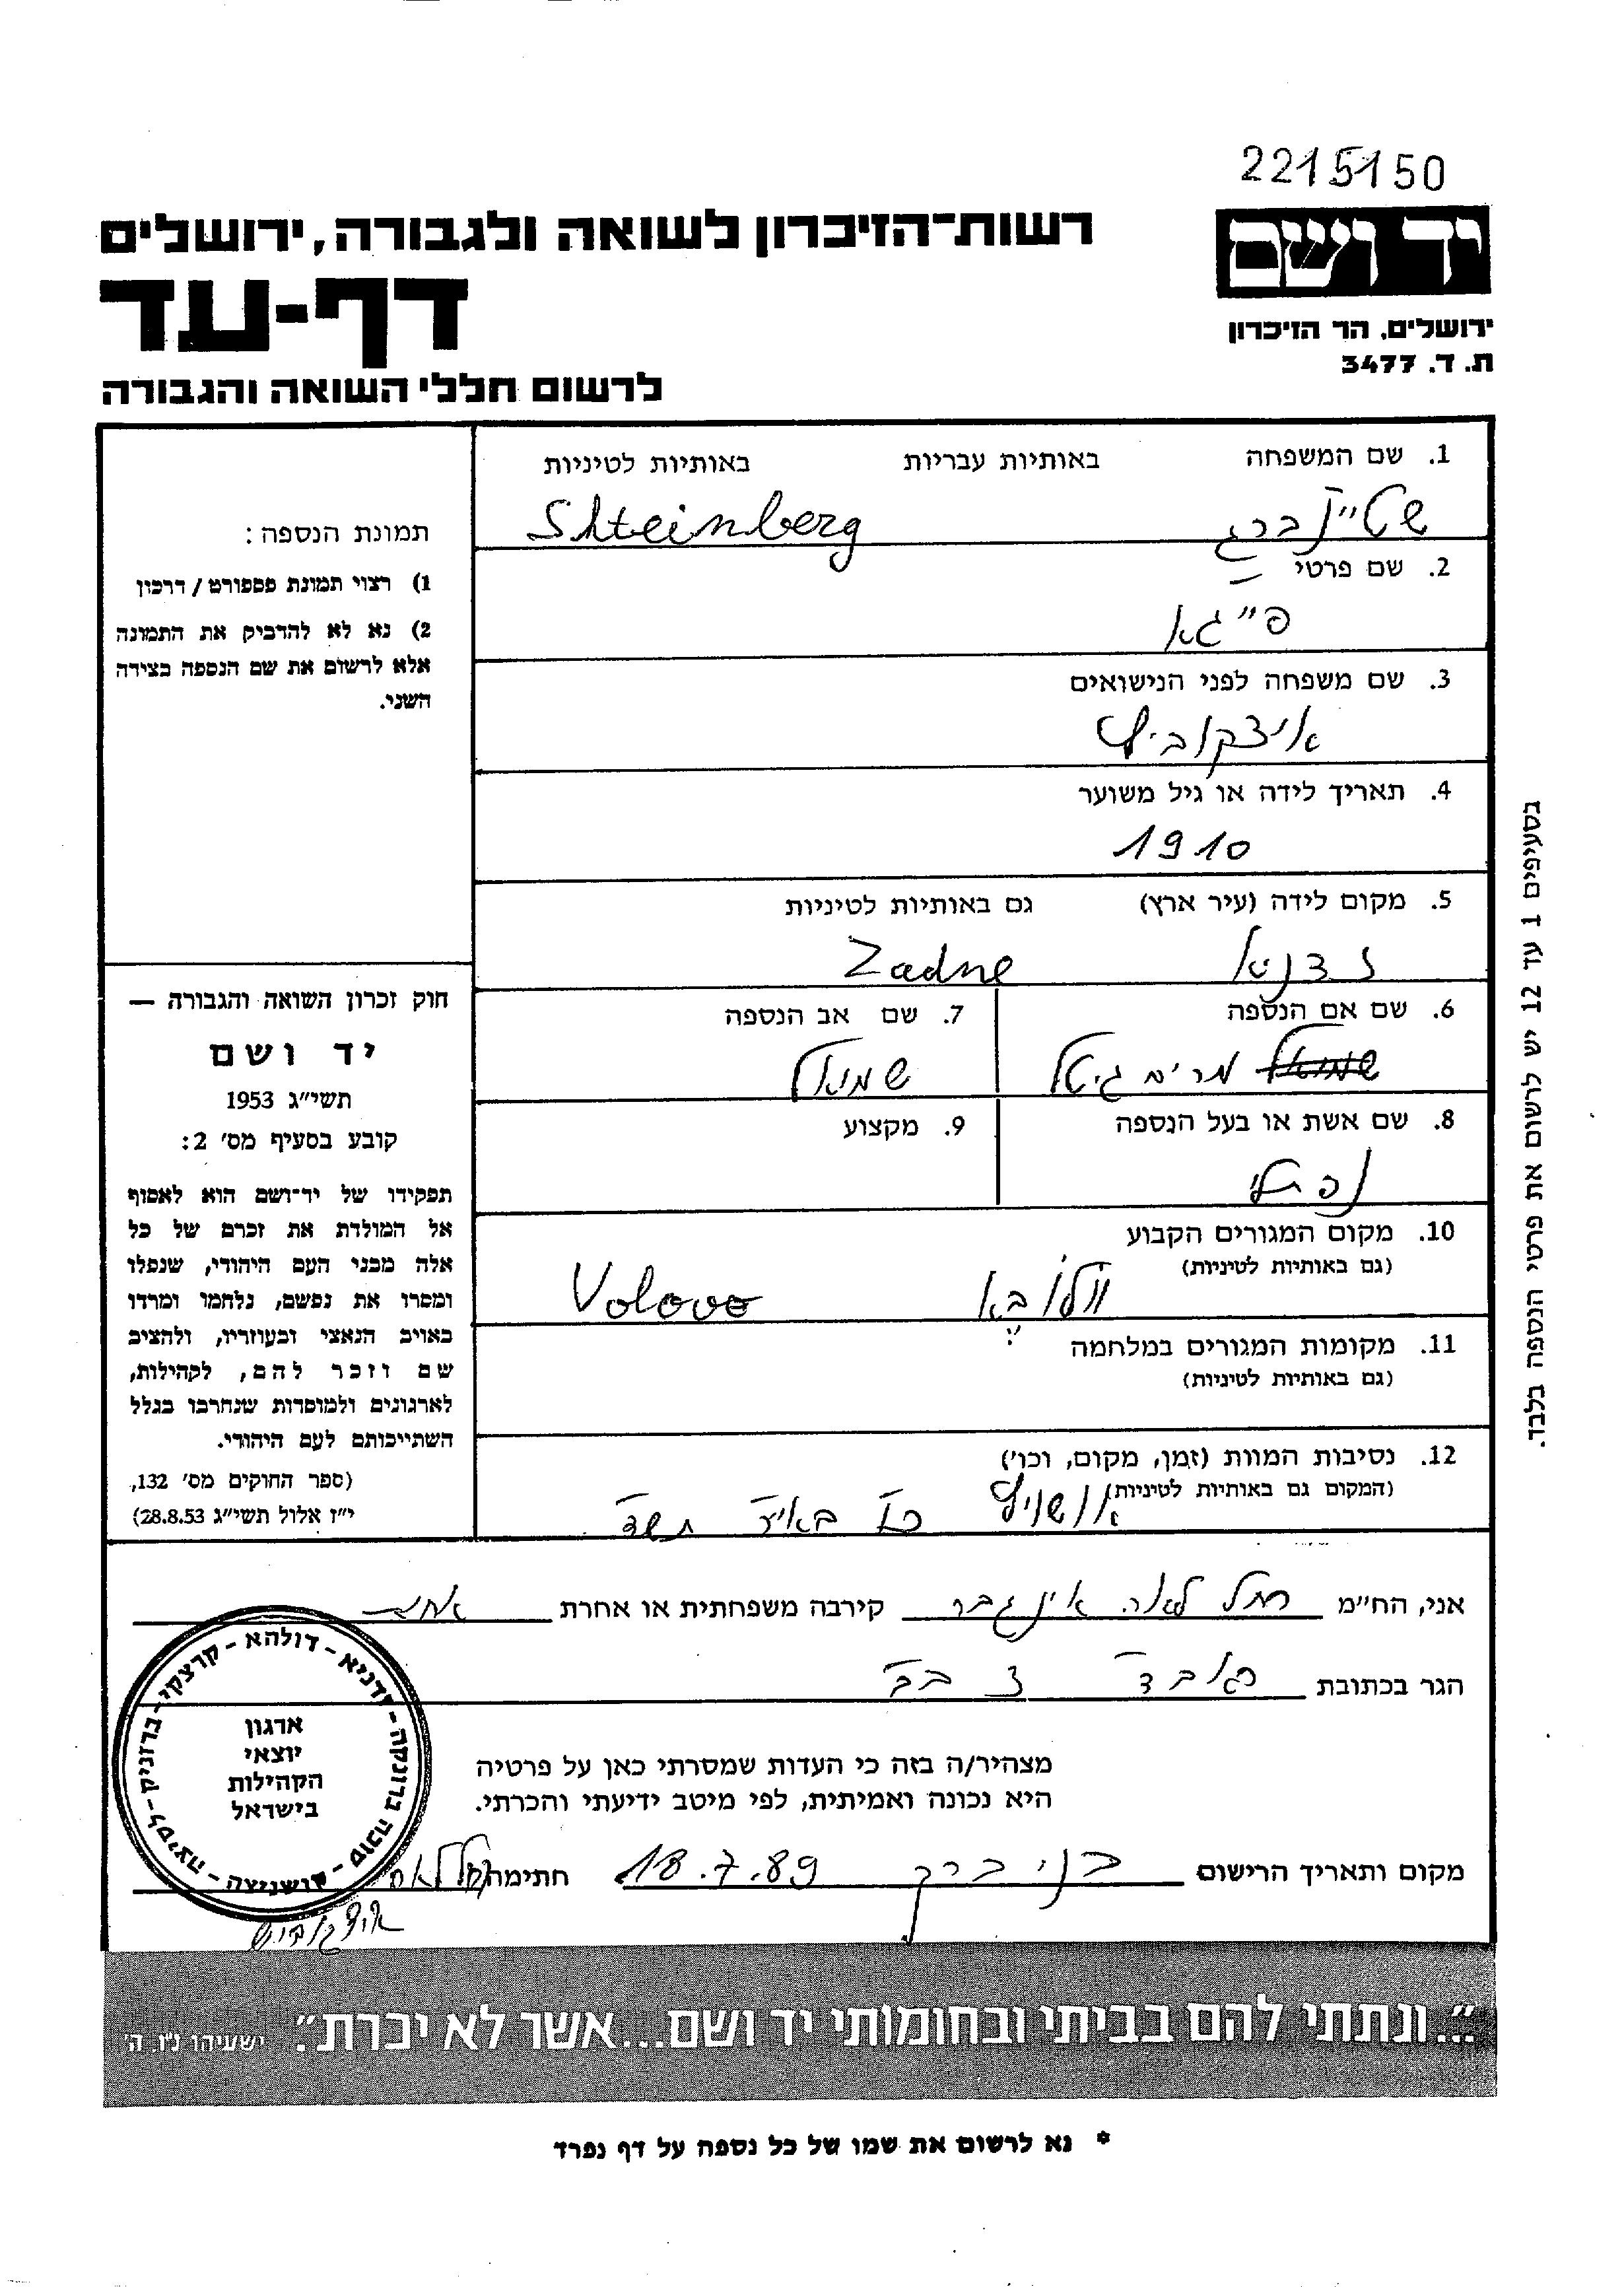 2215150
יד ושם
רשות־הזיכרון לשואה ולגבורה, ירושלים
דף-עד
ירושלים, הר הזיכרון
ת. ד. 3477
לרשום חללי השואה והגבורה
1. שם המשפחה באותיות עבריות באותיות לטיניות
שטיינברג Shteinberg
2. שם פרטי
פייגא
3. שם משפחה לפני הנישואים
איצקוביץ
4. תאריך לידה או גיל משוער
1910
5. מקום לידה (עיר ארץ) גם באותיות לטיניות
Zadne
6. שם אם הנספה
שמואל מרים גיטל
7. שם אב הנספה
שמואל
8. שם אשת או בעל הנספה
נפתלי
9. מקצוע
10. מקום המגורים הקבוע
(גם באותיות לטיניות)
וולובא Volovo
11. מקומות המגורים במלחמה
(גם באותיות לטיניות)
12. נסיבות המוות (זמן, מקום, וכו')
(המקום גם באותיות לטיניות)
אושויץ באייר תש"ד
תמונת הנספה:
1) רצוי תמונת פספורט / דרכון
2) נא לא להדביק את התמונה
אלא לרשום את שם הנספה בצידה
השני.
חוק זכרון השואה והגבורה —
יד ושם
תשי"ג 1953
קובע בסעיף מס' 2:
תפקידו של יד־ושם הוא לאסוף
אל המולדת את זכרם של כל
אלה מבני העם היהודי, שנפלו
ומסרו את נפשם, נלחמו ומרדו
באויב הנאצי ובעוזריו, ולהציב
שם וזכר להם, לקהילות,
לארגונים ולמוסדות שנחרבו בגלל
השתייכותם לעם היהודי.
(ספר החוקים מס' 132,
י"ז אלול תשי"ג 28.8.53)
בסעיפים 1 עד 12 יש לרשום את פרטי הנספה בלבד.
אני, הח"מ רחל לאה קירבה משפחתית או אחרת
הגר בכתובת ב"ב
מצהיר/ה בזה כי העדות שמסרתי כאן על פרטיה
היא נכונה ואמיתית, לפי מיטב ידיעתי והכרתי.
מקום ותאריך הרישום בני ברק 18.7.89 חתימה רחל לאה
איצקוביץ
ארגון
יוצאי
הקהילות
בישראל
דולהא - קרצקי - ברזניק - לסיצה - קושניצה - סוכה ברונקה - זדניא
"...ונתתי להם בביתי ובחומותי יד ושם...אשר לא יכרת". ישעיהו נ"ו, ה'
* נא לרשום את שמו של כל נספה על דף נפרד